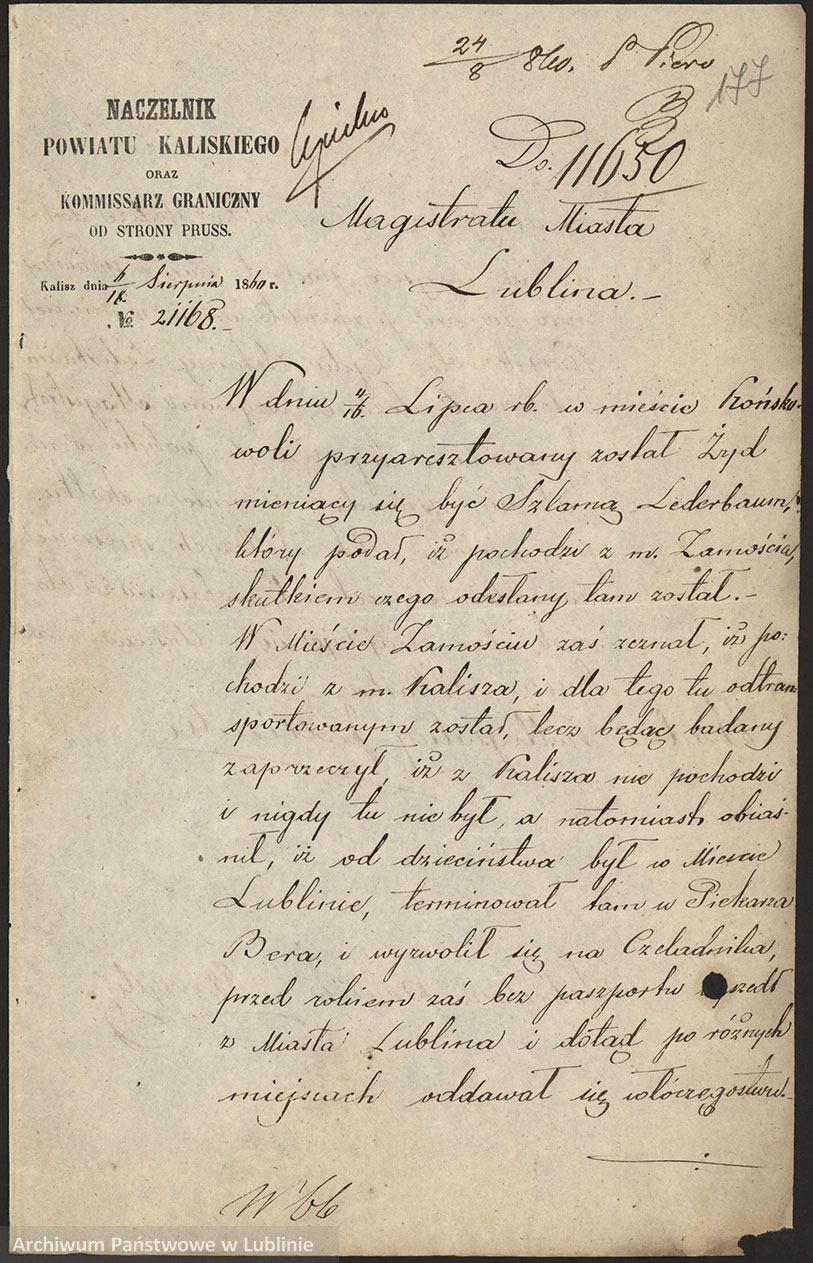 24/8 860.
177
NACZELNIK
POWIATU KALISKIEGO
ORAZ
KOMMISSARZ GRANICZNY
OD STRONY PRUSS.
Kalisz dnia 6/18. Sierpnia 1860 r.
No. 21168.
Do. 11650
Magistratu Miasta
Lublina.-
W dniu 4/16. Lipca rb. w mieście Końsko-
woli przyaresztowany został Żyd
mieniący się być Szlamą Lederbaum,
który podał, iż pochodzi z m. Zamościa,
skutkiem czego odesłany tam został.-
W Mieście Zamościu zaś zeznał, iż po-
chodzi z m. Kalisza, i dla tego tu odtran-
sportowanym został, lecz będąc badany
zaprzeczył, iż z Kalisza nie pochodzi
i nigdy tu nie był, a natomiast obiaś-
nił, iż od dzieciństwa był w Mieście
Lublinie, terminował tam u Piekarza
Bera, i wyzwolił się na Czeladnika,
przed rokiem zaś bez paszportu
z Miasta Lublina i dotąd po różnych
miejscach oddawał się włóczęgostwu.-
Archiwum Państwowe w Lublinie